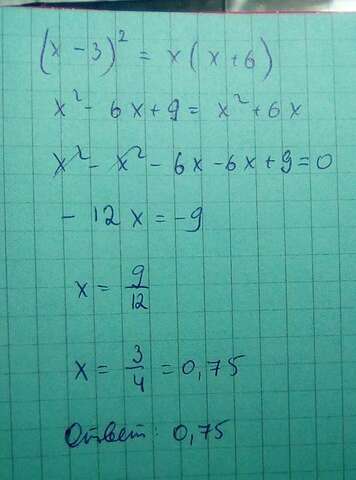 (x - 3)² = x (x + 6)
x² - 6x + 9 = x² + 6x
x² - x² - 6x - 6x + 9 = 0
- 12x = -9
x = 9/12
x = 3/4 = 0,75
Ответ: 0,75